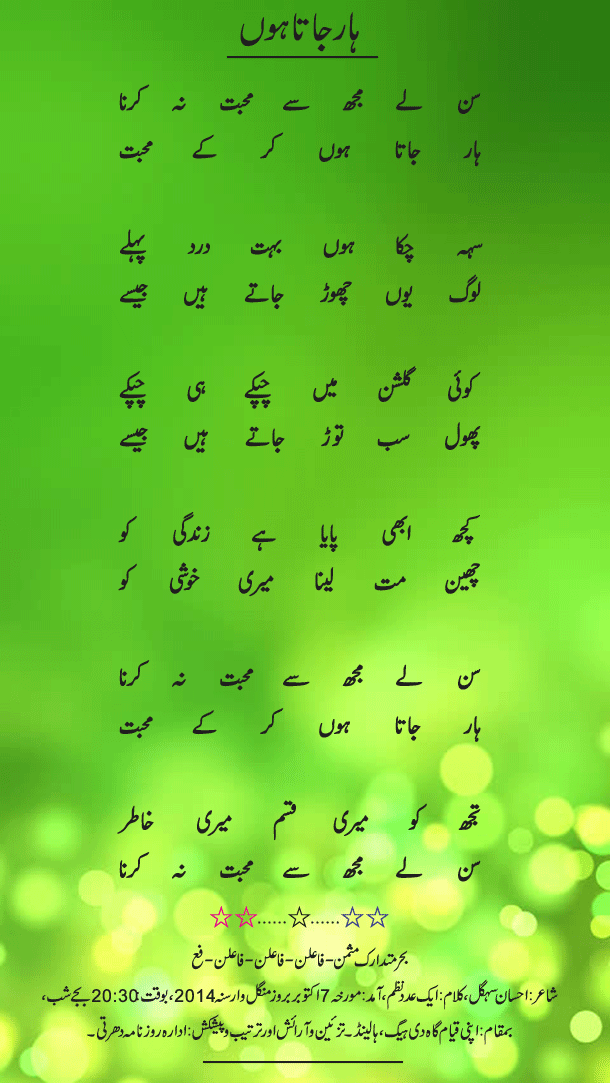 ہار جاتا ہوں
سن لے مجھ سے محبت نہ کرنا
ہار جاتا ہوں کر کے محبت
سہہ چکا ہوں بہت درد پہلے
لوگ یوں چھوڑ جاتے ہیں جیسے
کوئی گلشن میں چپکے ہی چپکے
پھول سب توڑ جاتے ہیں جیسے
کچھ ابھی پایا ہے زندگی کو
چھین مت لینا میری خوشی کو
سن لے مجھ سے محبت نہ کرنا
ہار جاتا ہوں کر کے محبت
تجھ کو میری قسم میری خاطر
سن لے مجھ سے محبت نہ کرنا
☆☆......☆......☆☆
بحر متدارک مثمن - فاعلن - فاعلن - فاعلن - فع
شاعر: احسان سہگل، کلام: ایک عدد نظم، آمد: مورخہ 7 اکتوبر بروز منگل وار سنہ 2014، بوقت: 20:30 بجے شب،
بمقام: اپنی قیام گاہ دی ہیگ، ہالینڈ۔ تزئین و آرائش اور ترتیب و پیشکش: ادارہ روزنامہ دھرتی۔